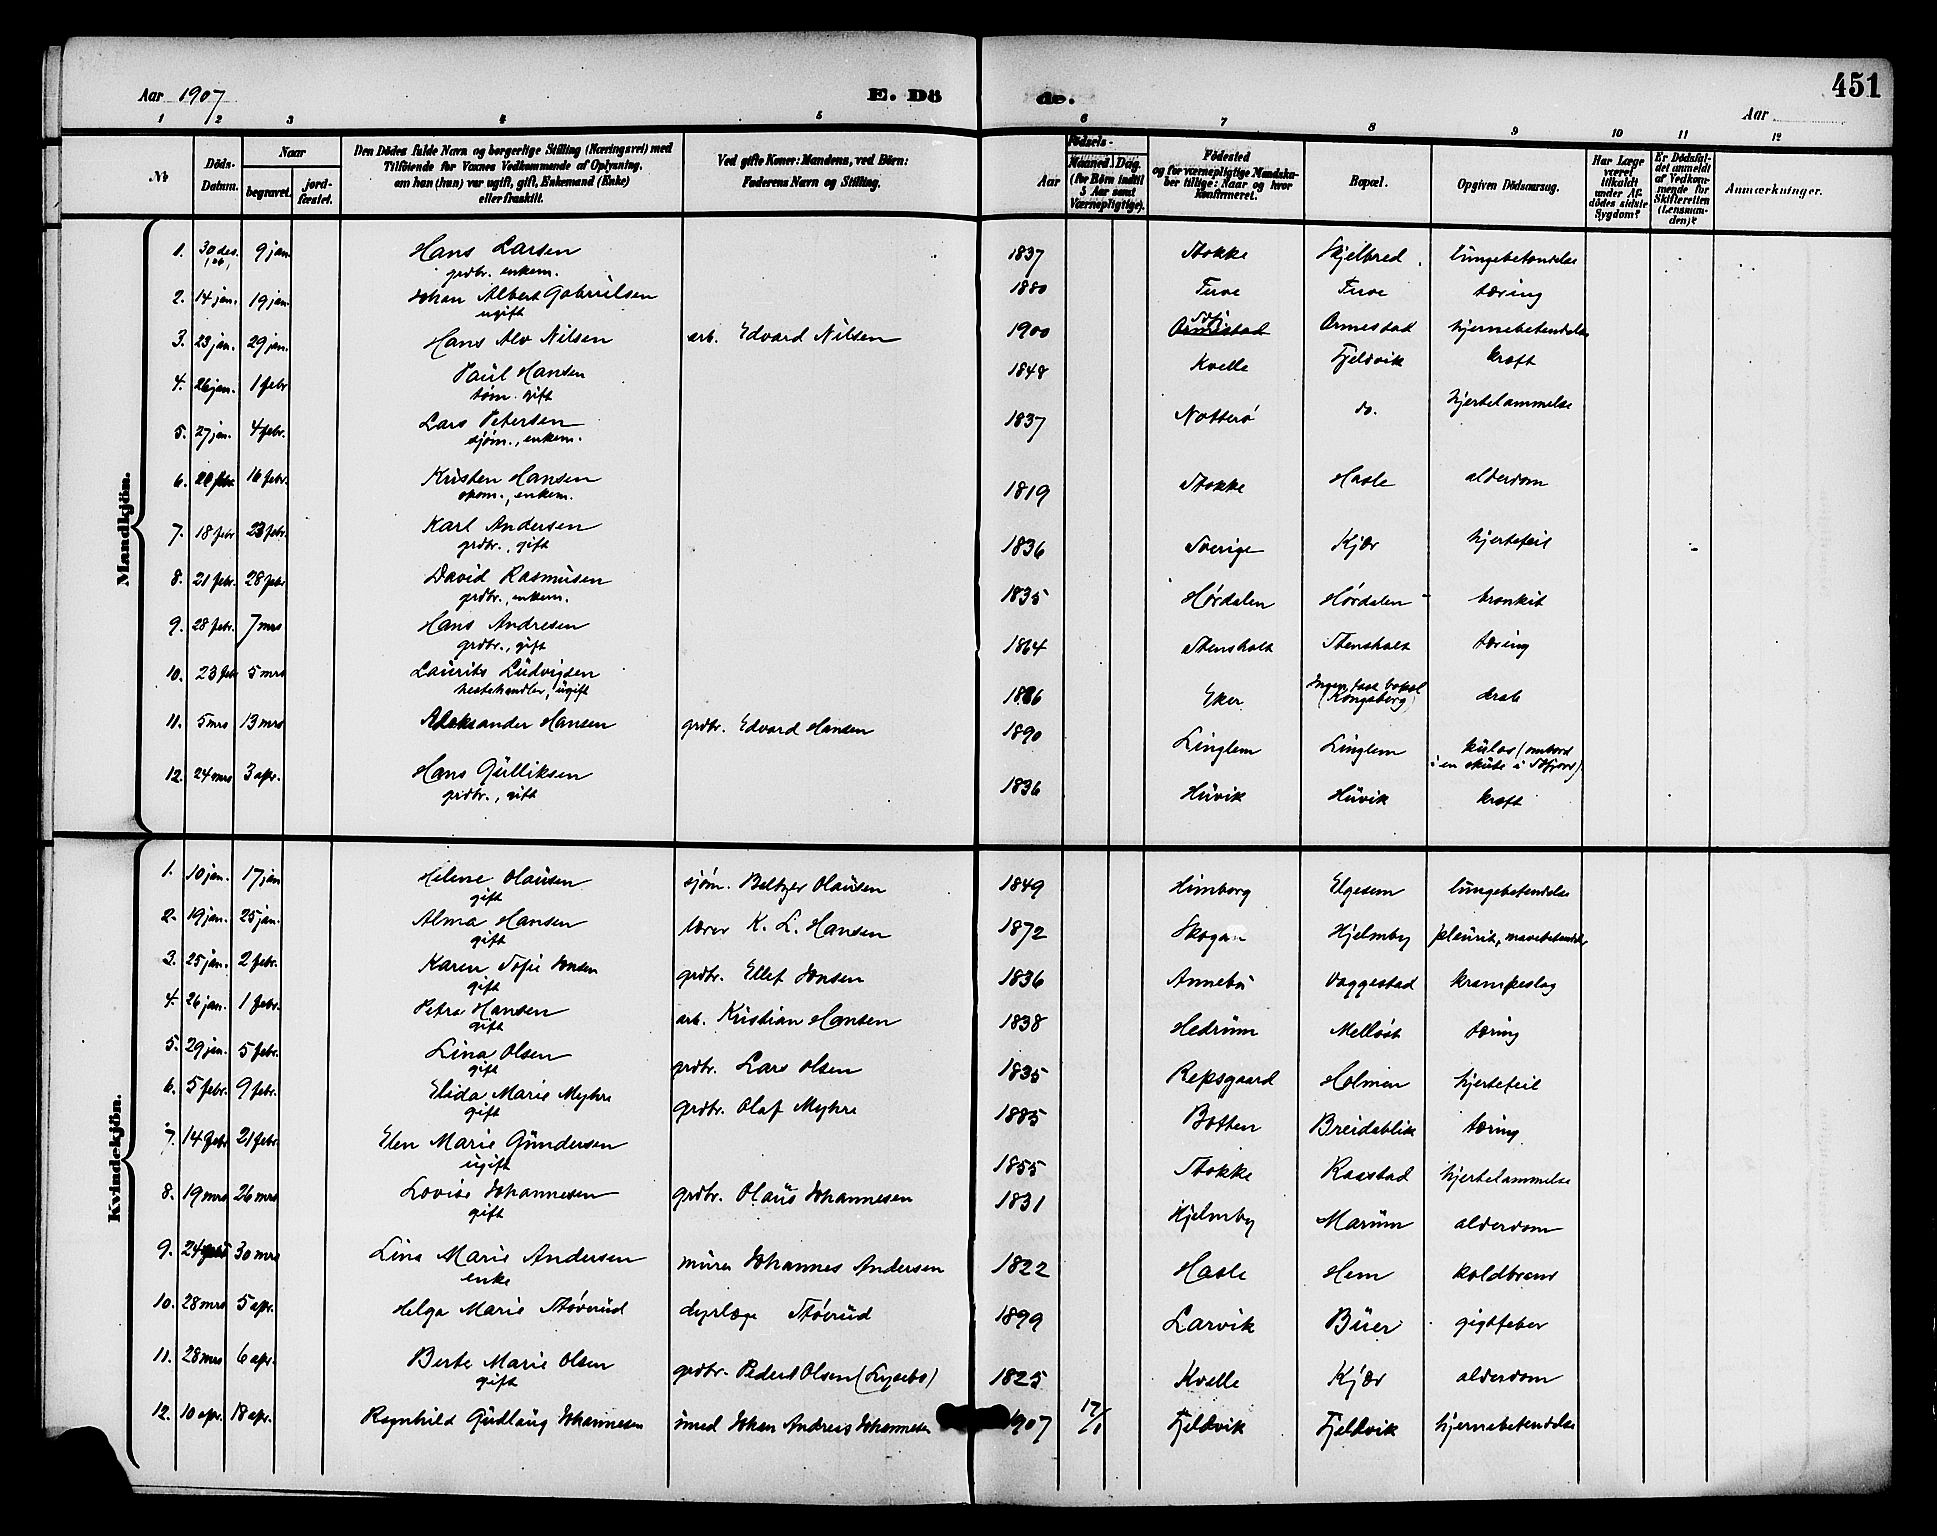 Aar 1907 E. Dö de. 451
Aar
1 2 3 4 5 6 7 8 9 10 11 12
No
Döds-Datum.
Naar
begravet.
jord-fæstet.
Den Dödes fulde Navn og borgerlige Stilling (Næringsvei) med
Tilföiende for Voxnes Vedkommende af Oplysning,
om han (hun) var ugift, gift, Enkemand (Enke)
eller fraskilt.
Ved gifte Koner: Mandens, ved Börn:
Faderens Navn og Stilling.
Födsels-
Aar
Maaned. Dag.
(for Börn indtil
5 Aar samt
Værnepligtige).
Födested
og for værnepligtige Mandska-
ber tillige: Naar og hvor
konfirmeret.
Bopæl.
Opgiven Dödsaarsag.
Har Læge
været
tilkaldt
under Af-
dödes sidste
Sygdom?
Er Dödsfal-
det anmeldt
af Vedkom-
mende for
Skifteretten
(Lensman-
den)?
Anmærkninger.
Mandkjön.
1. 30 des. 9 jan. Hans Larsen 1837 Stokke Skjelbred lungebetendelse
grdbr. enkem.
2. 14 jan. 19 jan. Johan Albert Gabrielsen 1880 Furve Furve tæring
ugift
3. 23 jan. 29 jan. Hans Alv Nilsen arb. Edvard Nilsen 1900 Ormestad Ormestad hjernebetendelse
4. 26 jan. 1 febr. Paul Hansen 1848 Kvelle Fjeldvik kræft
tøm. gift
5. 27 jan. 4 febr. Lars Petersen 1837 Nøtterø do. hjertelammelse
sjøm., enkem.
6. 16 febr. Kristen Hansen 1819 Stokke Hasle alderdom
enkem.
7. 18 febr 23 febr. Karl Andersen 1836 Sverige Kjær hjertefeil
grdbr., gift
8. 21 febr. 28 febr David Rasmusen 1835 Hørdalen Hørdalen bronkit
grdbr., enkem.
9. 28 febr. 7 mrs Hans Andresen 1864 Stensholt Stensholt tæring
grdbr., gift
10. 23 febr 5 mrs Laurits Ludvigsen Eker Ingen fast bopæl (Kongsberg) drab
hestehandler, ugift
11. 5 mrs 13 mrs Aleksander Hansen grdbr. Edvard Hansen 1890 Linglem Linglem kulos (ombord
i en skute i
12. 24 mrs 3 apr. Hans Gulliksen 1836 Huvik Huvik kræft
grdbr., gift
Kvindekjön.
1. 10 jan. 17 jan Helene Olausen sjøm. Beltzer Olausen 1849 Himberg Elgesem lungebetendelse
gift
2. 19 jan. 25 jan. Alma Hansen lærer K. L. Hansen 1872 Skogan Hjelmby pleurit,
gift
3. 25 jan. 2 febr. Karen Sofie Jonsen grdbr. Ellef Jonsen 1836 Annebø Vaggestad krampeslag
gift
4. 26 jan. 1 febr. Petra Hansen arb. Kristian Hansen 1838 Hedrum Melløst tæring
gift
5. 29 jan. 5 febr. Lina Olsen grdbr. Lars Olsen 1835 Repsgaard Holmen hjertefeil
gift
6. 5 febr. 9 febr. Elida Marie Myhre grdbr. Olaf Myhre 1885 Botten Breidablik tæring
gift
7. 14 febr 21 febr. Elen Marie Gundersen 1855 Stokke Raastad hjertelammelse
ugift
8. 19 mrs 26 mrs Lovise Johannesen grdbr. Olaus Johannesen 1831 Hjelmby Marum alderdom
gift
9. 24 30 mrs Lina Marie Andersen murer Johannes Andersen 1822 Hasle Hem koldbrand
enke
10. 28 mrs 5 apr. Helga Marie Støverud dyrlæge Støverud 1899 Larvik Buer gigtfeber
11. 28 mrs 6 apr. Berte Marie Olsen grdbr. Peder Olsen (Lysebo) 1825 Kvelle Kjær alderdom
gift
12. 10 apr. 18 apr. Ragnhild Gudlaug Johannesen smed Johan Andreas Johannesen 1907 17/1 Fjeldvik Fjeldvik hjernebetendelse